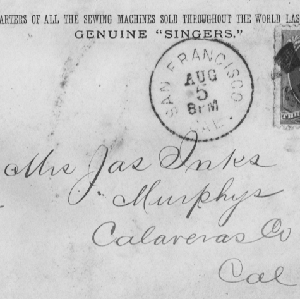 ARTERS OF ALL THE SEWING MACHINES SOLD THROUGHOUT THE WORLD LAS
GENUINE "SINGERS."
SAN FRANCISCO
AUG
5
8PM
CAL.
Mrs Jas Inks
Murphys
Calaveras Co
Cal